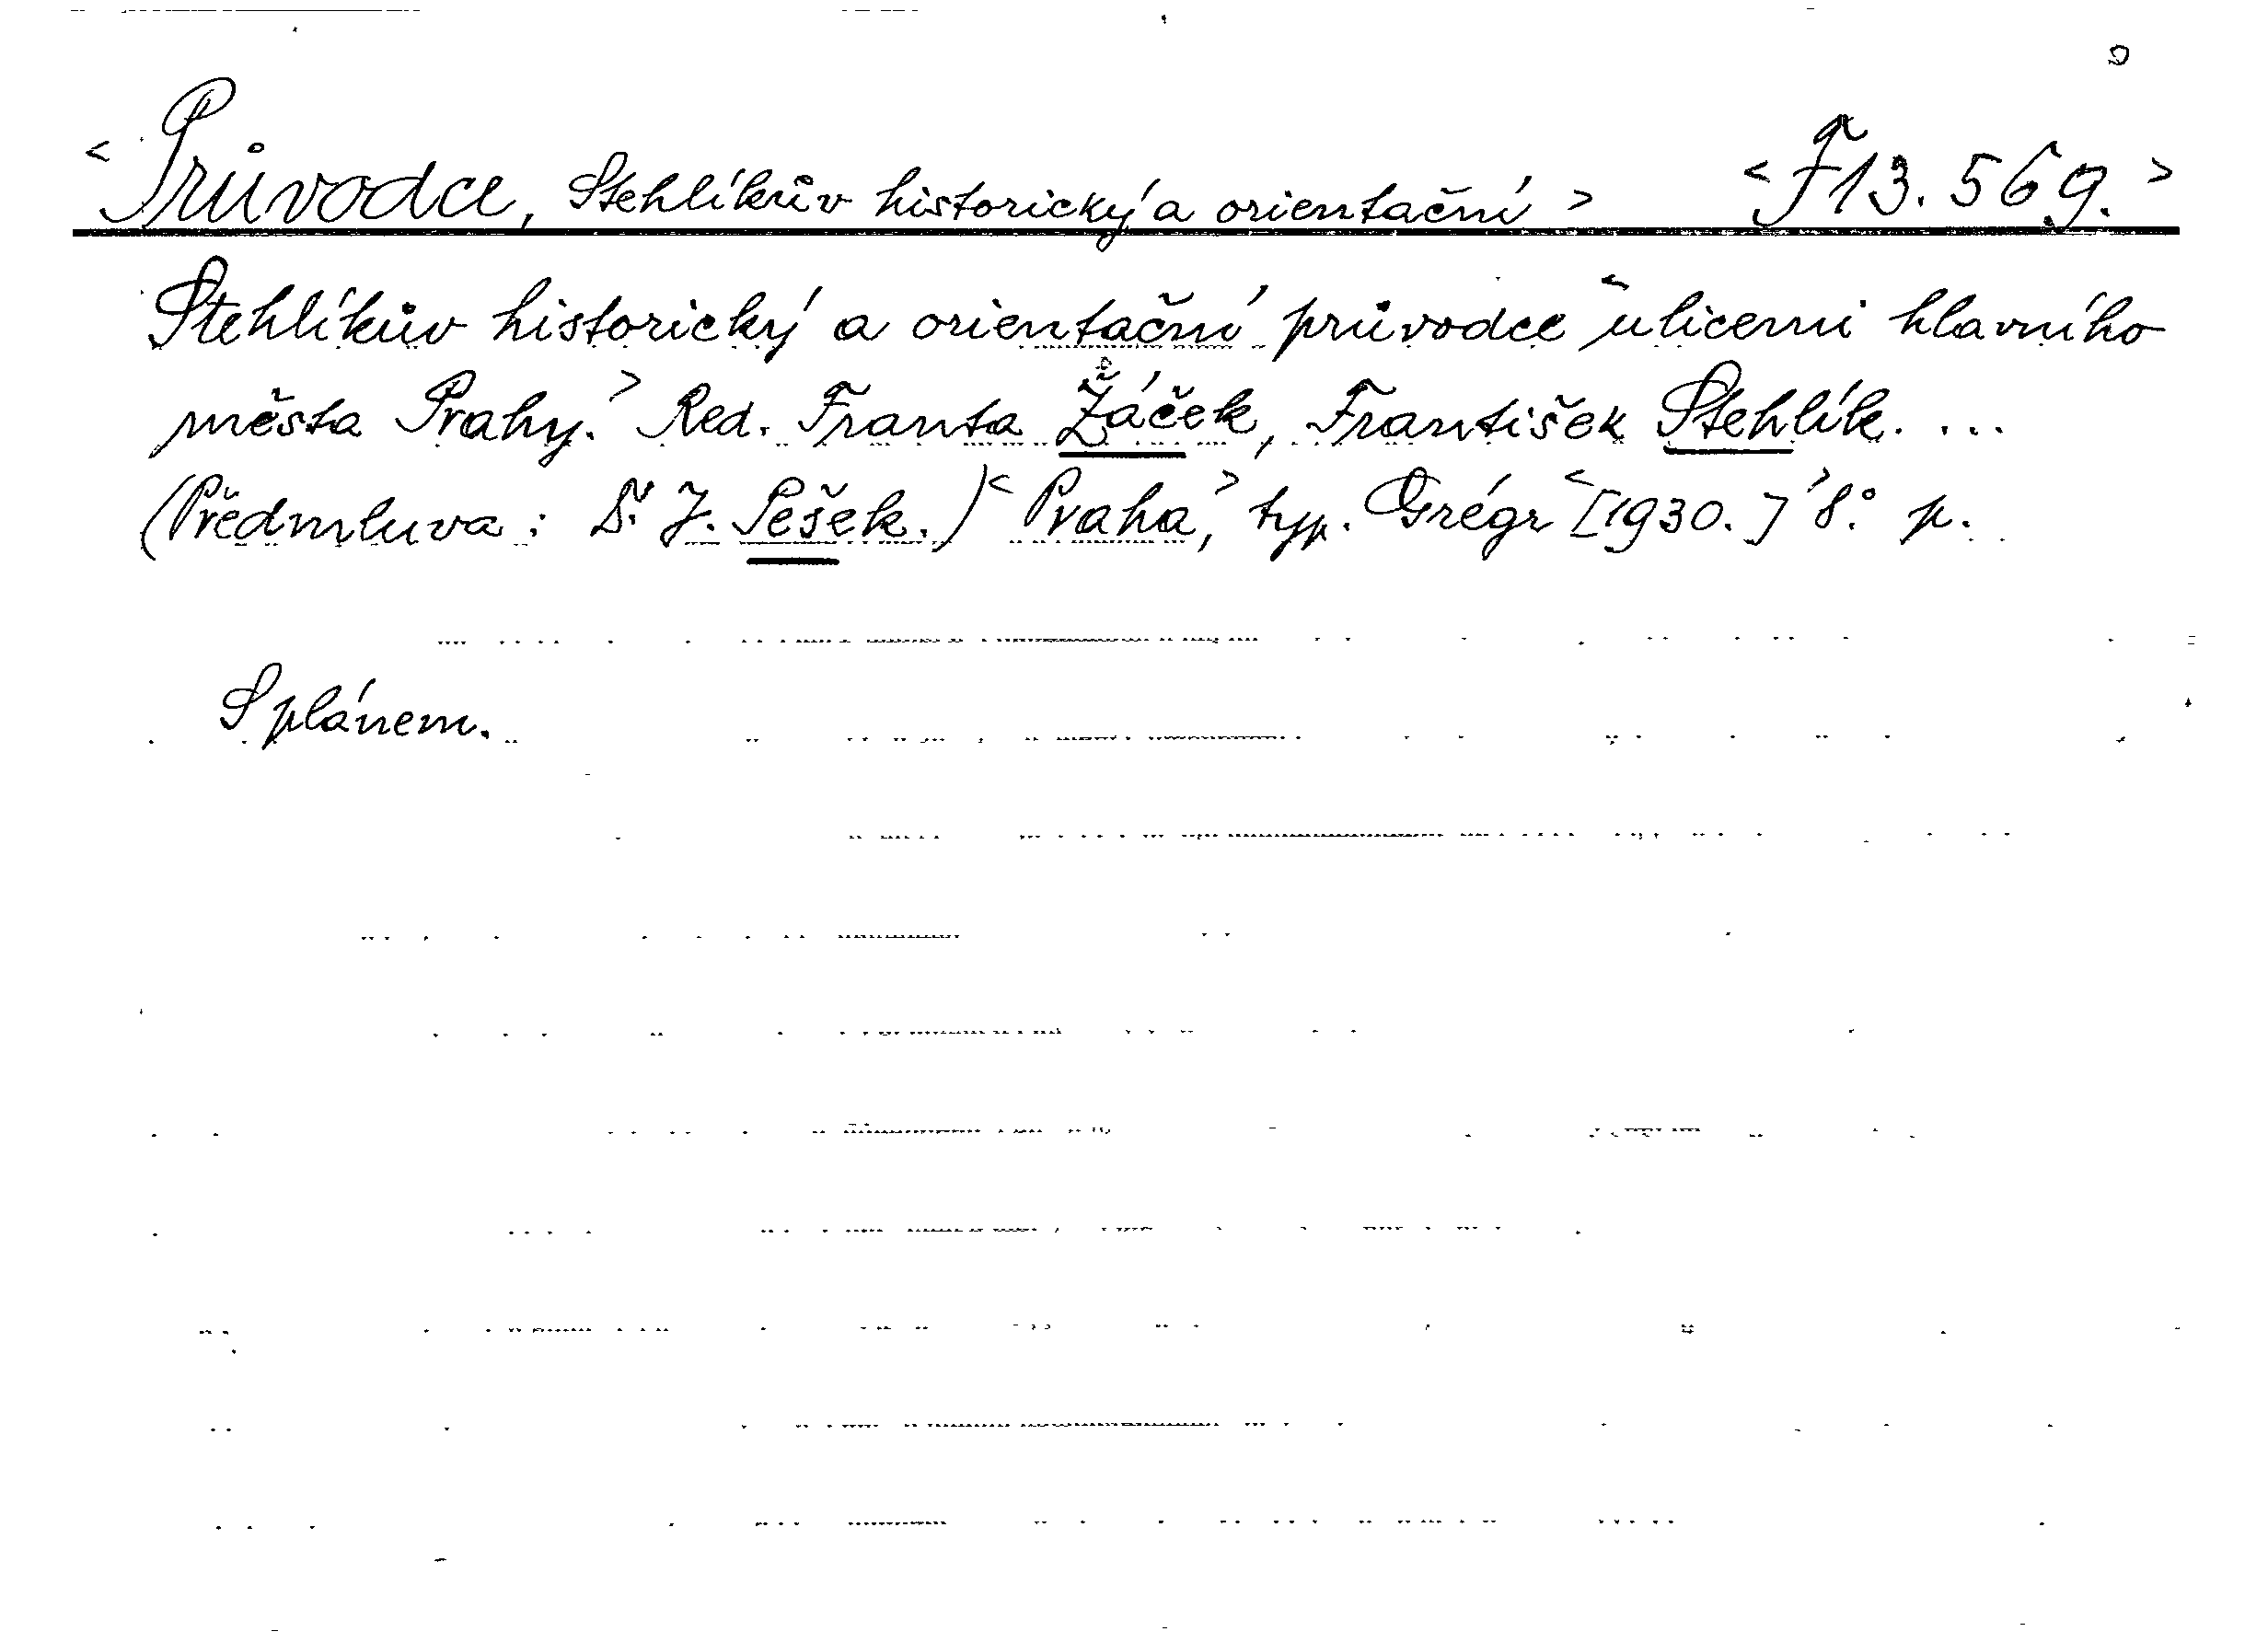 < Průvodce, Stehlíkův historický a orientační > < F 13.569. >
Stehlíkův historický a orientační průvodce < ulicemi hlavního
města Prahy. > Red. Franta Žáček, František Stehlík. ...
(Předmluva: Dr. J. Pešek.) < Praha, > typ. Grégr < [1930.] > 8.° p.
S plánem.